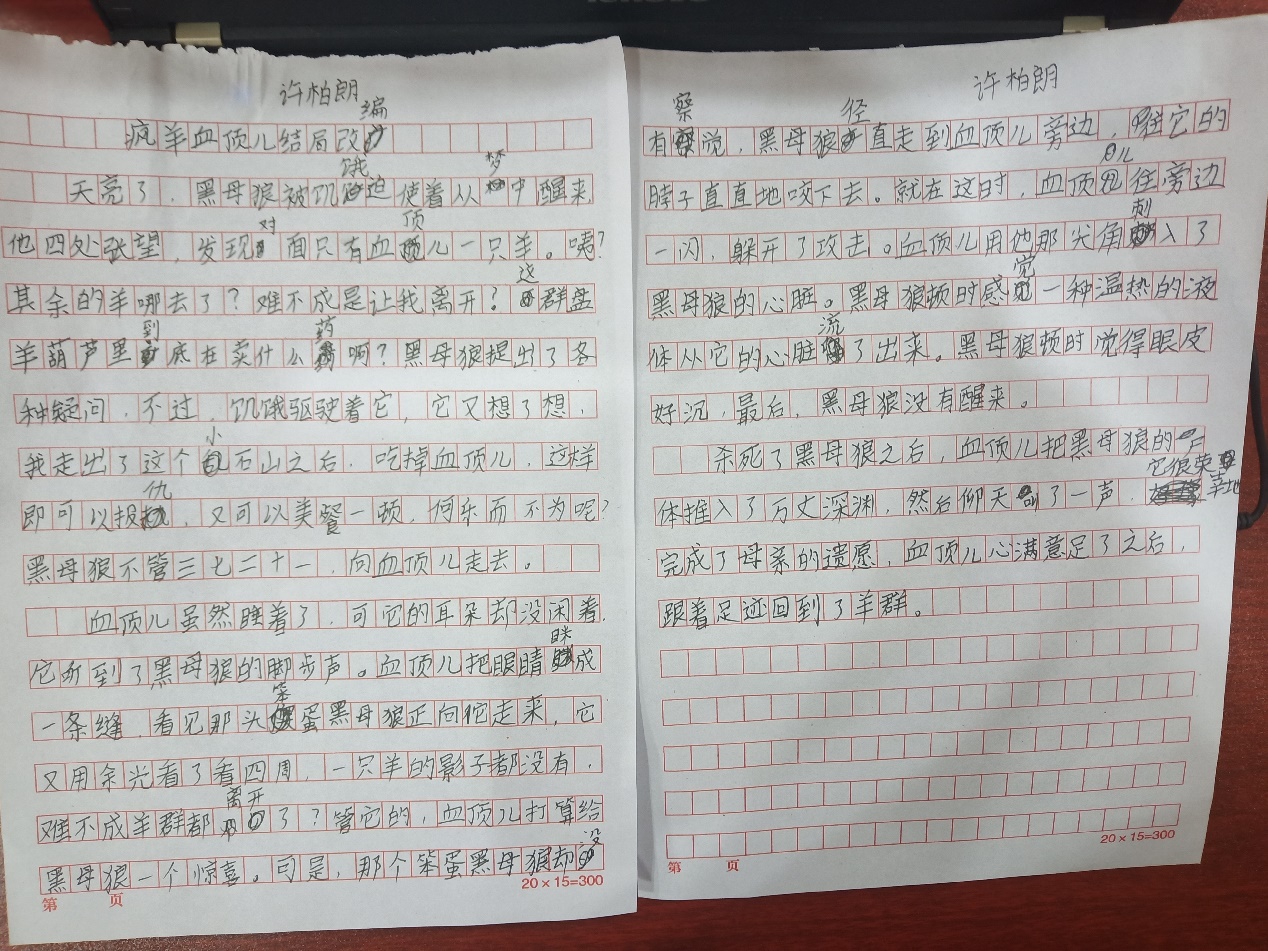 许柏朗
疯羊血顶儿结局改编
天亮了，黑母狼被饥饿迫使着从梦中醒来
他四处张望，发现对面只有血顶儿一只羊。咦？
其余的羊哪去了？难不成是让我离开？这群盘
羊葫芦里到底在卖什么药啊？黑母狼提出了各
种疑问，不过，饥饿驱驶着它，它又想了想，
我走出了这个小石山之后，吃掉血顶儿，这样
即可以报仇，又可以美餐一顿，何乐而不为呢？
黑母狼不管三七二十一，向血顶儿走去。
血顶儿虽然睡着了，可它的耳朵却没闲着，
它听到了黑母狼的脚步声。血顶儿把眼睛眯成
一条缝，看见那头笨蛋黑母狼正向它走来，它
又用余光看了看四周，一只羊的影子都没有，
难不成羊群都离开了？管它的，血顶儿打算给
黑母狼一个惊喜。可是，那个笨蛋黑母狼却没
第 页
20×15=300
许柏朗
有察觉，黑母狼径直走到血顶儿旁边，往它的
脖子直直地咬下去。就在这时，血顶儿往旁边
一闪，躲开了攻击。血顶儿用他那尖角刺入了
黑母狼的心脏。黑母狼顿时感觉一种温热的液
体从它的心脏流了出来。黑母狼顿时觉得眼皮
好沉，最后，黑母狼没有醒来。
杀死了黑母狼之后，血顶儿把黑母狼的尸
体推入了万丈深渊，然后仰天叫了一声，它很荣幸地
完成了母亲的遗愿，血顶儿心满意足了之后，
跟着足迹回到了羊群。
第 页
20×15=300